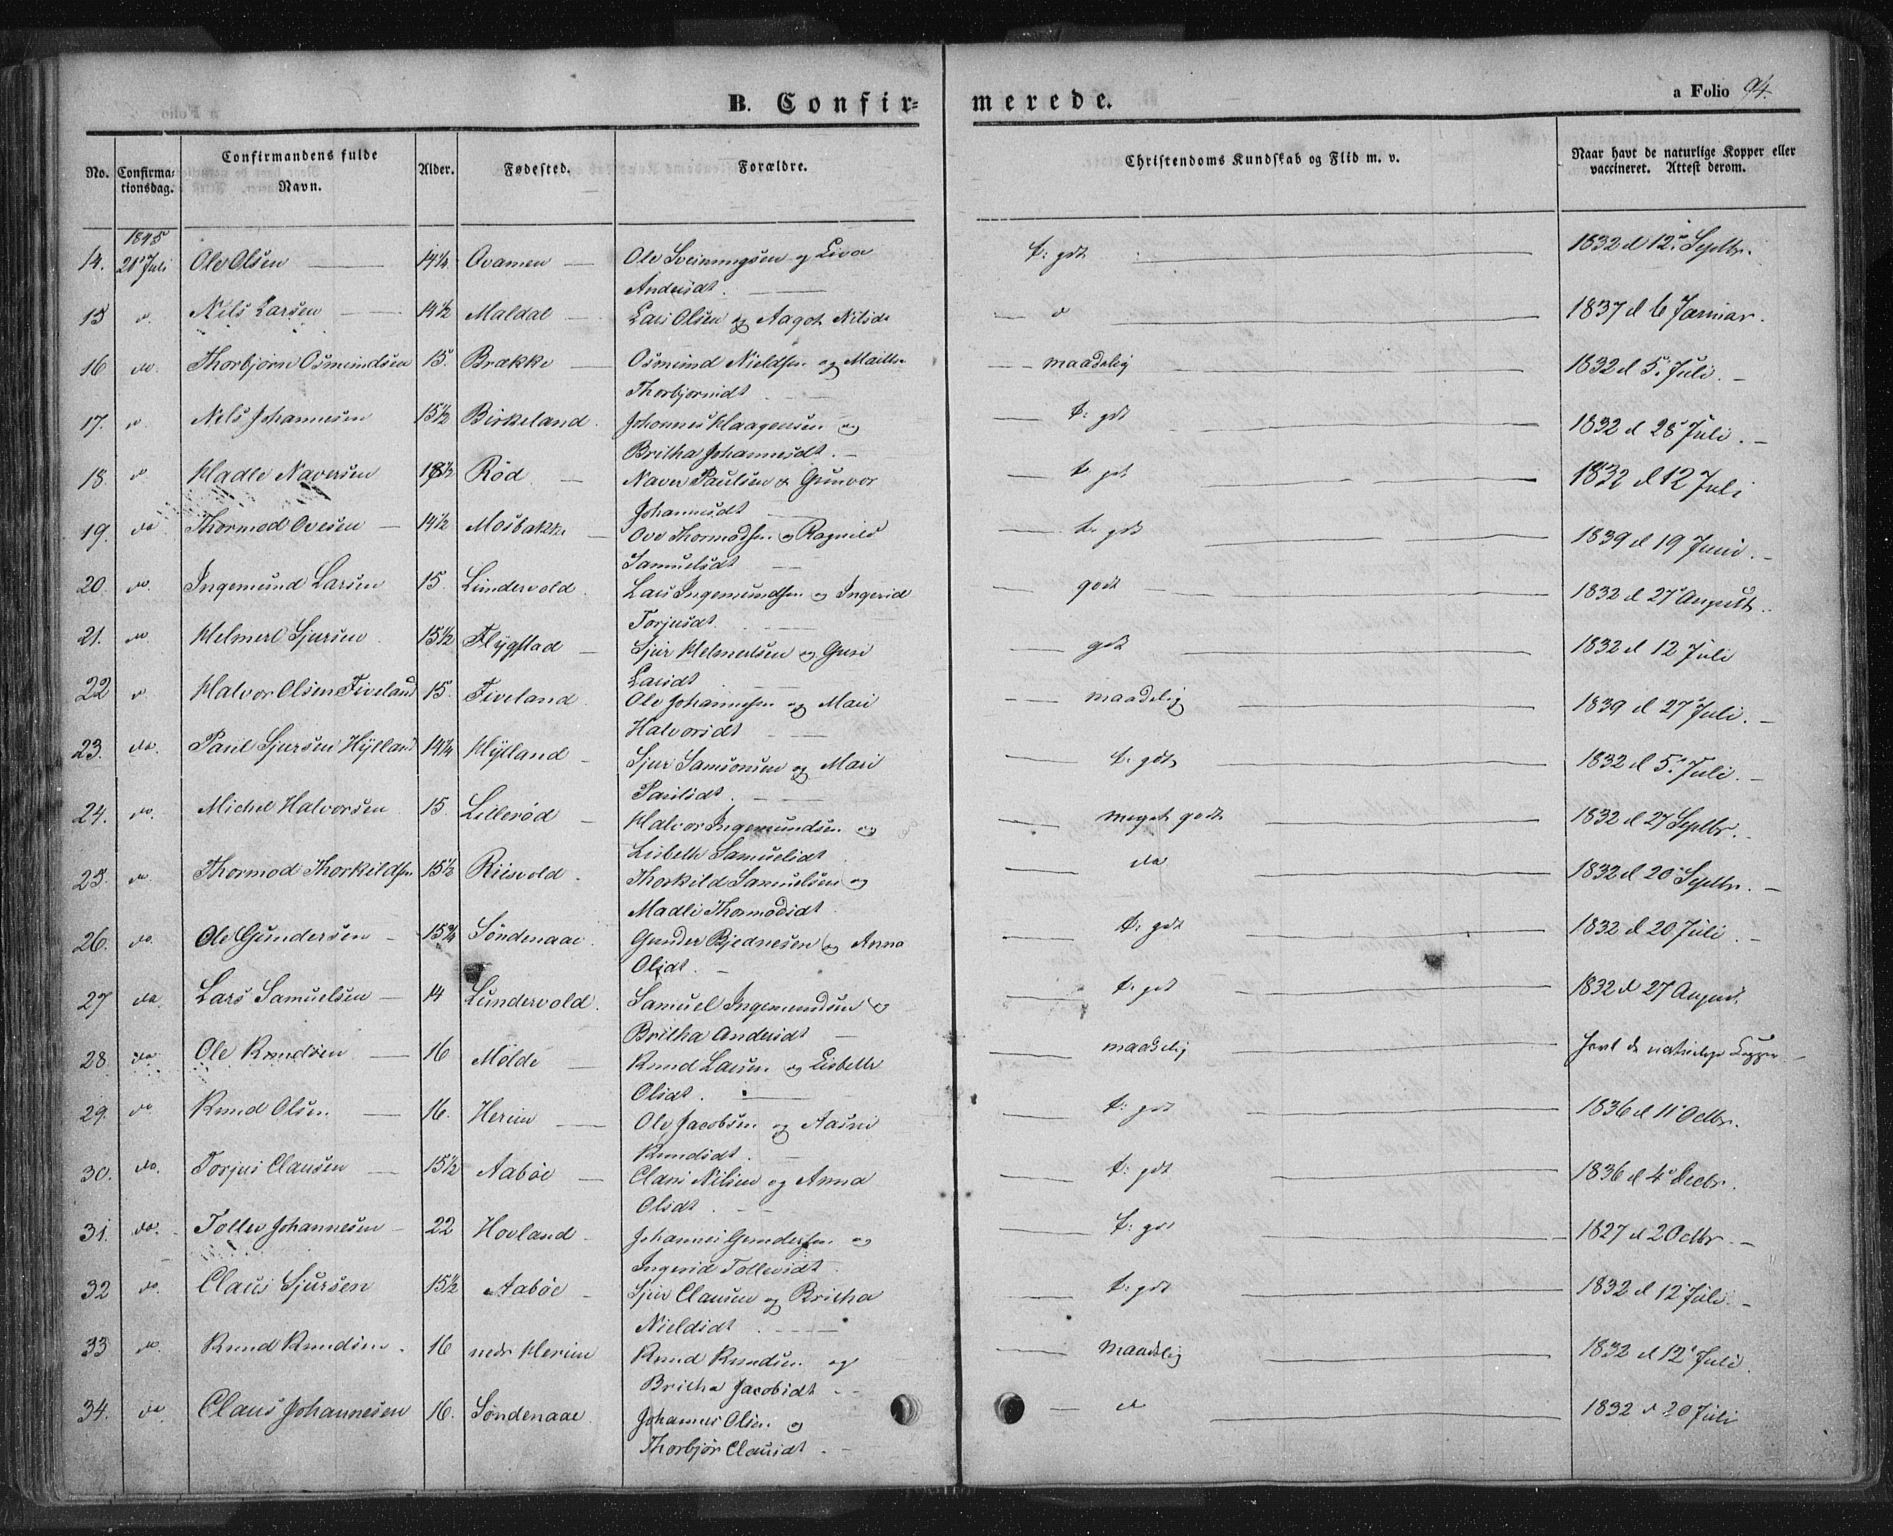 B. Confir-
merede.
a Folio 94.
No. Confirmationsdag. Confirmandens fulde Navn. Alder. Fødested. Forældre. Christendoms Kundskab og Flid m. v. Naar havt de naturlige Kopper eller vaccineret. Attest derom.
1845
14. 20 Juli Ole Olsen 14¼ Ovamen Ole Sveinungsen og Liva t: gdt 1832 d 12 Septbr.
Andersdt.
15 do. Nils Larsen 14½ Maldal Lars Olsen og Aagot Nilsdt do 1837 d 6 Januar.
16 do. Thorbjørn Osmundsen 15. Brække Osmund Nieldsen og Malle maadelig 1832 d 5 Juli.
Thorbjørnsdt
17. do Nils Johannesen 15½ Birkeland. Johannes Haagensen og t: gdt 1832 d 28 Juli.
Britha Johannesdt.
18. do Hadle Naversen 18½ Rød Naver Paulsen & Gunvor t. gdt 1832 d 12 Juli
Johannesdt
19. do Thormod Ovesen 14½ Mosbakke Ove Thormodsen og Ragnild t. gdt 1839 d 19 Juni.
Samuelsdt
20. do. Ingemund Larsen 15. Lundervold. Lars Ingemundsen og Ingerid godt 1832 d 27 August.
Torjusdt.
21. do Helmert Sjursen 15½ Flygstad Sjur Helmertsen og Guri gdt 1832 d 12 Juli
Larsdt
22 do Halvor Olsen Fiveland 15. Fiveland Ole Johannesen og Mari maadelig 1839 d 27 Juli.
Halvorsdt
23. do. Paul Sjursen Hylland 14¼ Hylland Sjur Samsonsen og Mari t. gdt 1832 d 5 Juli.
Paulsdt.
24. do. Michel Halvorsen 15 Lillerød Halvor Ingemundsen og meget godt 1832 d 27 Septbr.
Lisbeth Samuelsdt
25. do. Thormod Thorkildsen 15½ Riisvold. Thorkild Samuelsen og do 1832 d 20 Septbr.
Madli Thormodsdt.
26. do. Ole Gundersen 15¾ Søndenaae. Gunder Bjednesen og Anna t. gdt 1832 d 20 Juli.
Olsdt.
27 do. Lars Samuelsen 14 Lundervold. Samuel Ingemundsen og t. gdt 1832 d 27 August.
Britha Andersdt
28 do. Ole Knudsen 16 Molde Knud Larsen og Lisbeth maadelig Havt de naturlige Kopper
Olsdt.
29. do Knud Olsen 16. Herim Ole Jacobsen og Aasne t: gdt 1836 d 11 Octbr.
Knudsdt
30. do. Torjus Clausen 15½ Aabøe Claus Nilsen og Anna t: gdt 1836 d 4 Decbr.
Olsdt
31. do. Tollev Johannesen 22 Hovland Johannes Gundersen og t: gdt 1827 d 2 Octbr.
Ingerid Tollevsdt
32 do. Claus Sjursen 15½ Aabøe Sjur Clausen og Britha t: gdt 1832 d 12 Juli.
Nieldsdt
33 do. Knud Knudsen 16 nedr Herim Knud Knudsen og maadelig 1832 d 12 Juli.
Britha Jacobsdt
34. do Claus Johannesen 16. Søndenaae. Johannes Olsen og do 1832 d 20 Juli
Thorbjør Clausdt.